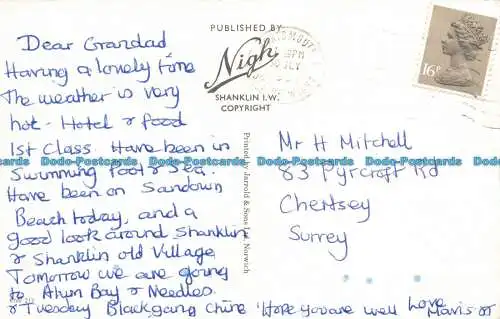 Dear Grandad
Having a lovely time
The weather is very
hot - Hotel & food
1st Class Have been in
Swimming Pool & Sea.
Have been on Sandown
Beach today, and a
good look around Shanklin
& Shanklin old Village
Tomorrow we are going
to Alum Bay & Needles
& Tuesday Blackgang Chine Hope you are well Love
Mavis
PUBLISHED BY
Nigh
SHANKLIN I.W.
COPYRIGHT
Printed by Jarrold & Sons Ltd, Norwich
16P
Mr H Mitchell
83 Pyrcroft Rd
Chertsey
Surrey
Dodo-Postcards Dodo-Postcards Dodo-Postcards Dodo-Postcards Dodo-Postcards Dodo-Postcards